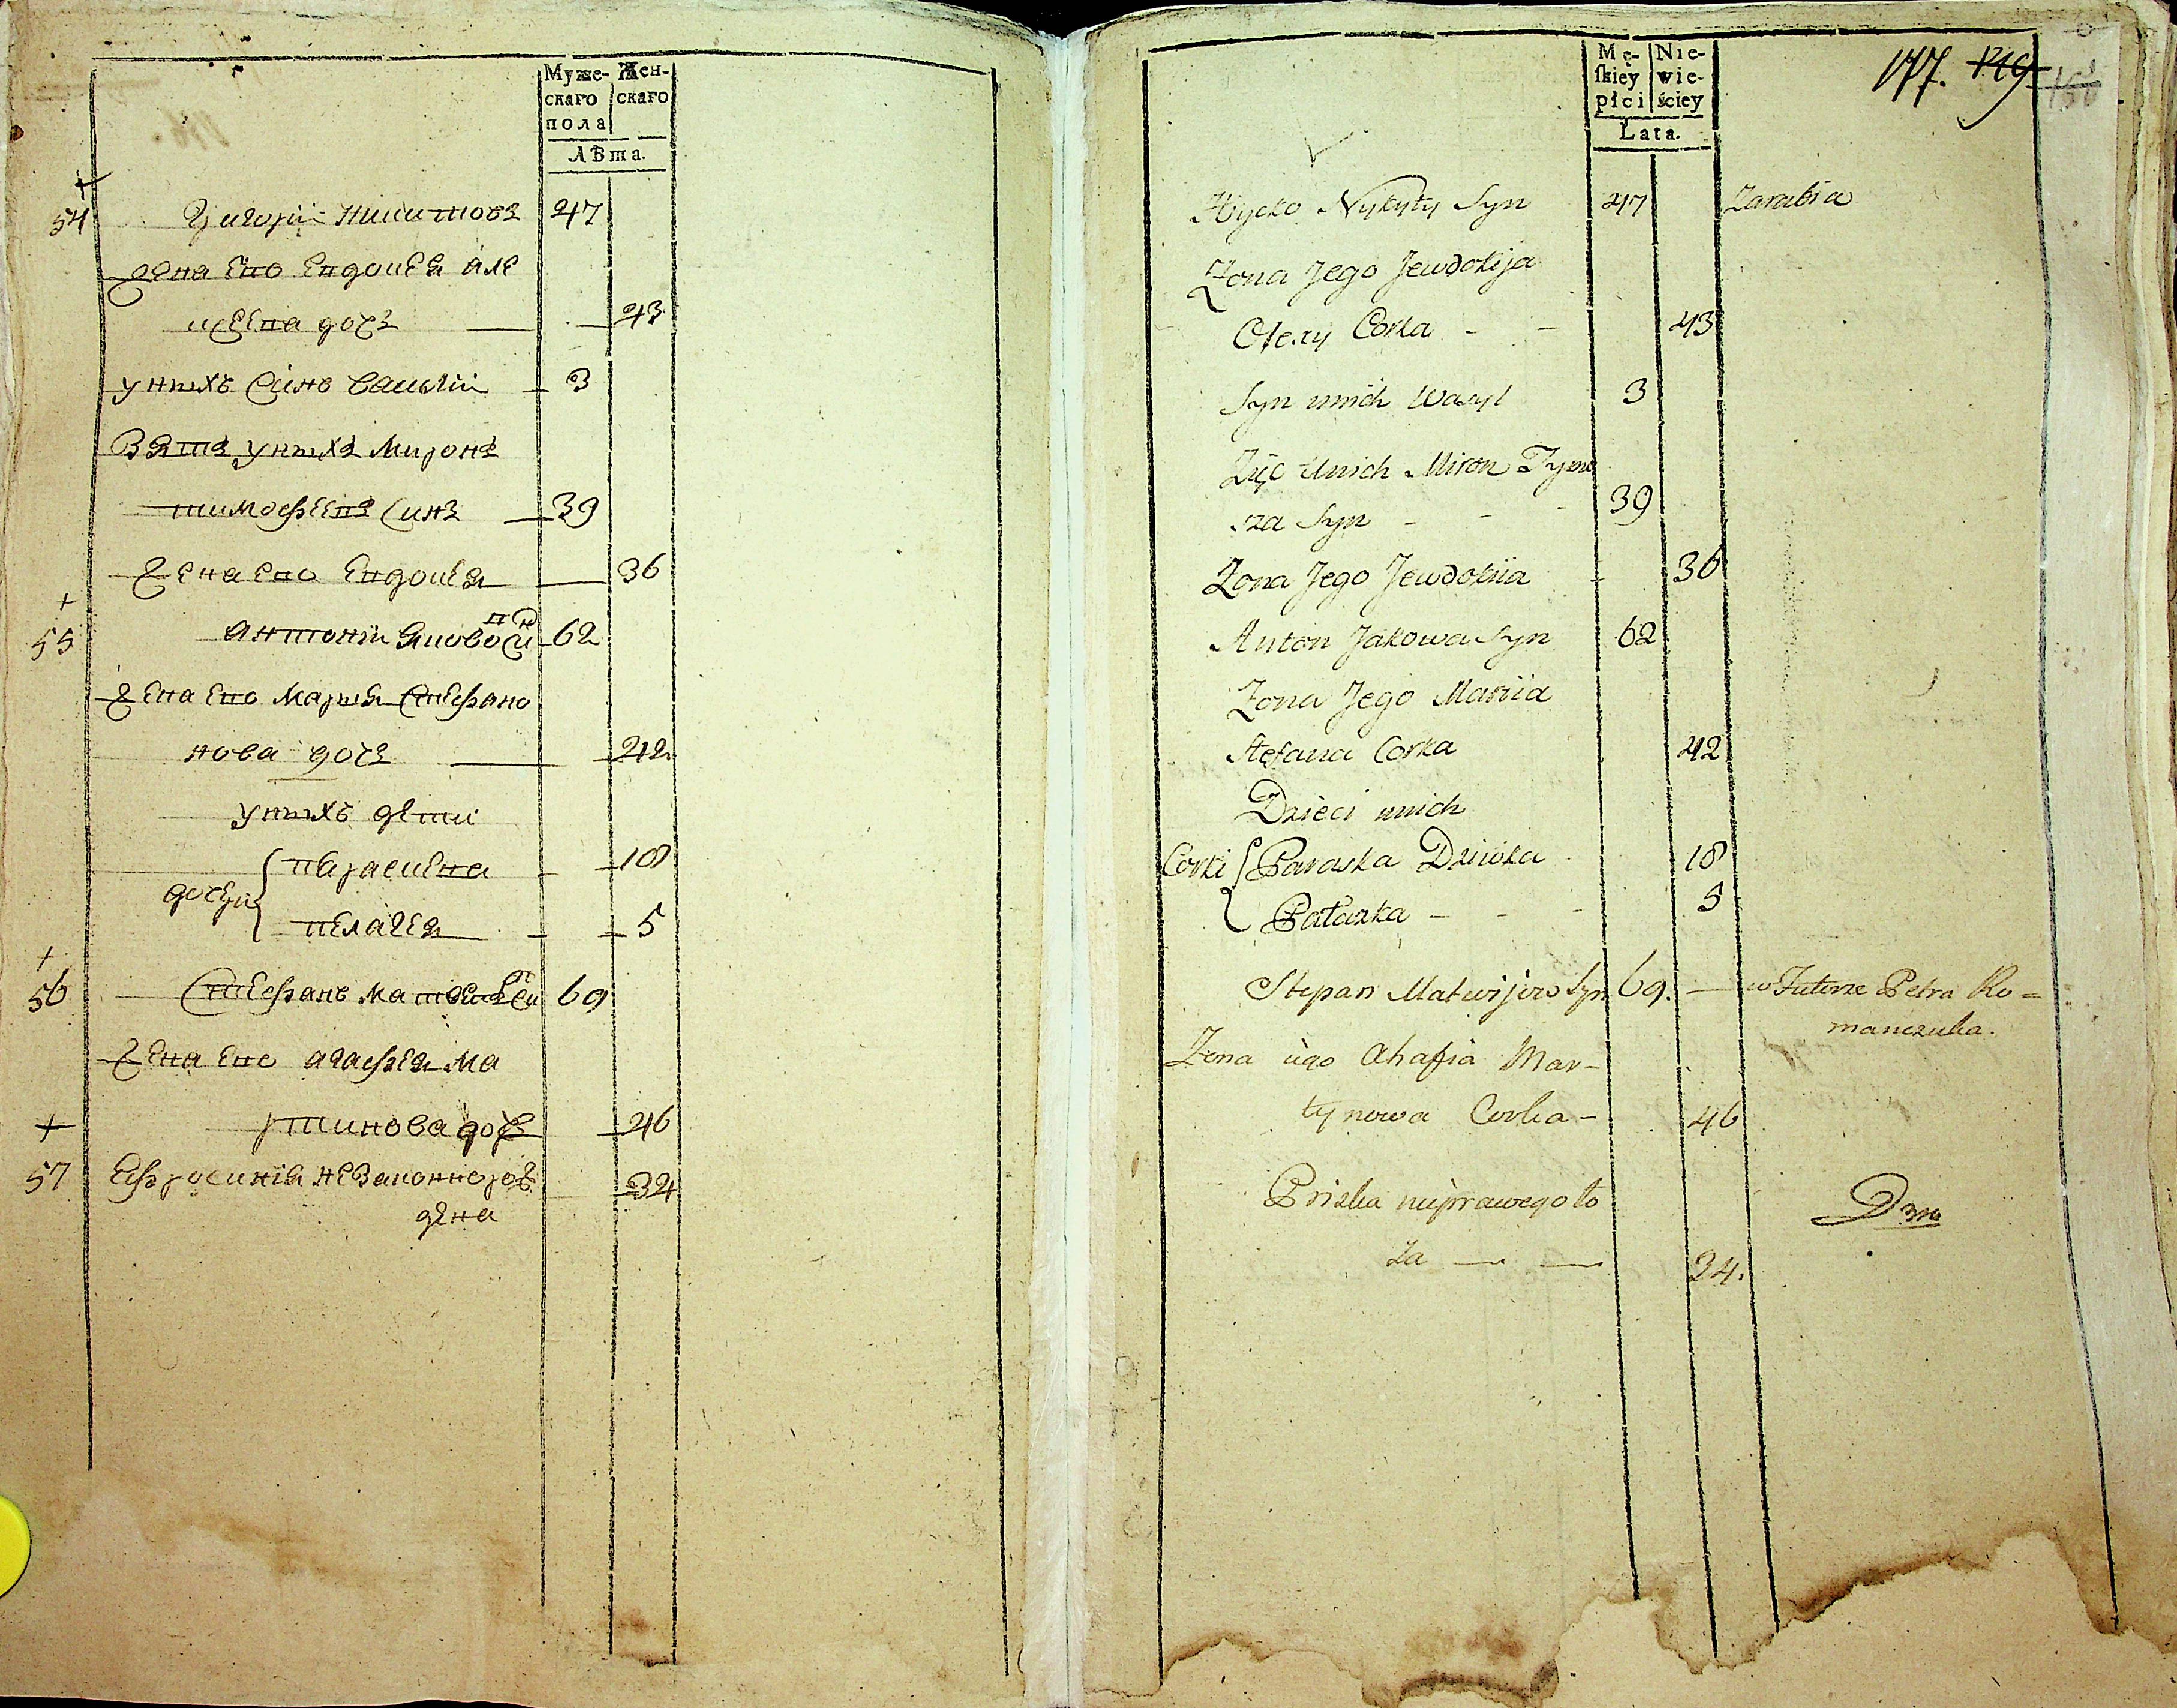 Муже- Жен-
скаго скаго
пола
Лѣта.
54 Григорій Никитовъ 47
жена Его Евдокія але
ксѣева дочъ 43
у нихъ синъ василій 3
Зять у нихъ Миронъ
тимофѣевъ синъ 39
жена его Евдокія 36
55 антоній Яковов син 62
жена Его Марія Стефано
нова дочъ 42
у нихъ дѣти
дочери { параскева 18
пелагея 5
56 Стефанъ Матвѣев си 69
жена Его агафія Ма
ртинова дочъ 46
57 Ефросинія незаконнорож
дена 34
Mę- Nie-
skiey wie-
płci ściey
Lata.
177. 149
Hycko Nykyty Syn 47 Zarabia
Żona Jego Jewdokija
Olexy Corka 43
Syn unich Wasyl 3
Zięc Unich Miron Tymo
sza Syn 39
Żona Jego Jewdokiia 36
Anton Jakowa Syn 62
Żona Jego Mariia
Stefana Corka 42
Dzieci unich
Corki { Paraska Dziwka 18
Pałazka 5
Stepan Matwijow Syn 69. w Futorze Petra Ro=
manczuka.
Zona iego Ahafia Mar-
tynowa Corka 46
Priska nieprawego ło
ża 34.